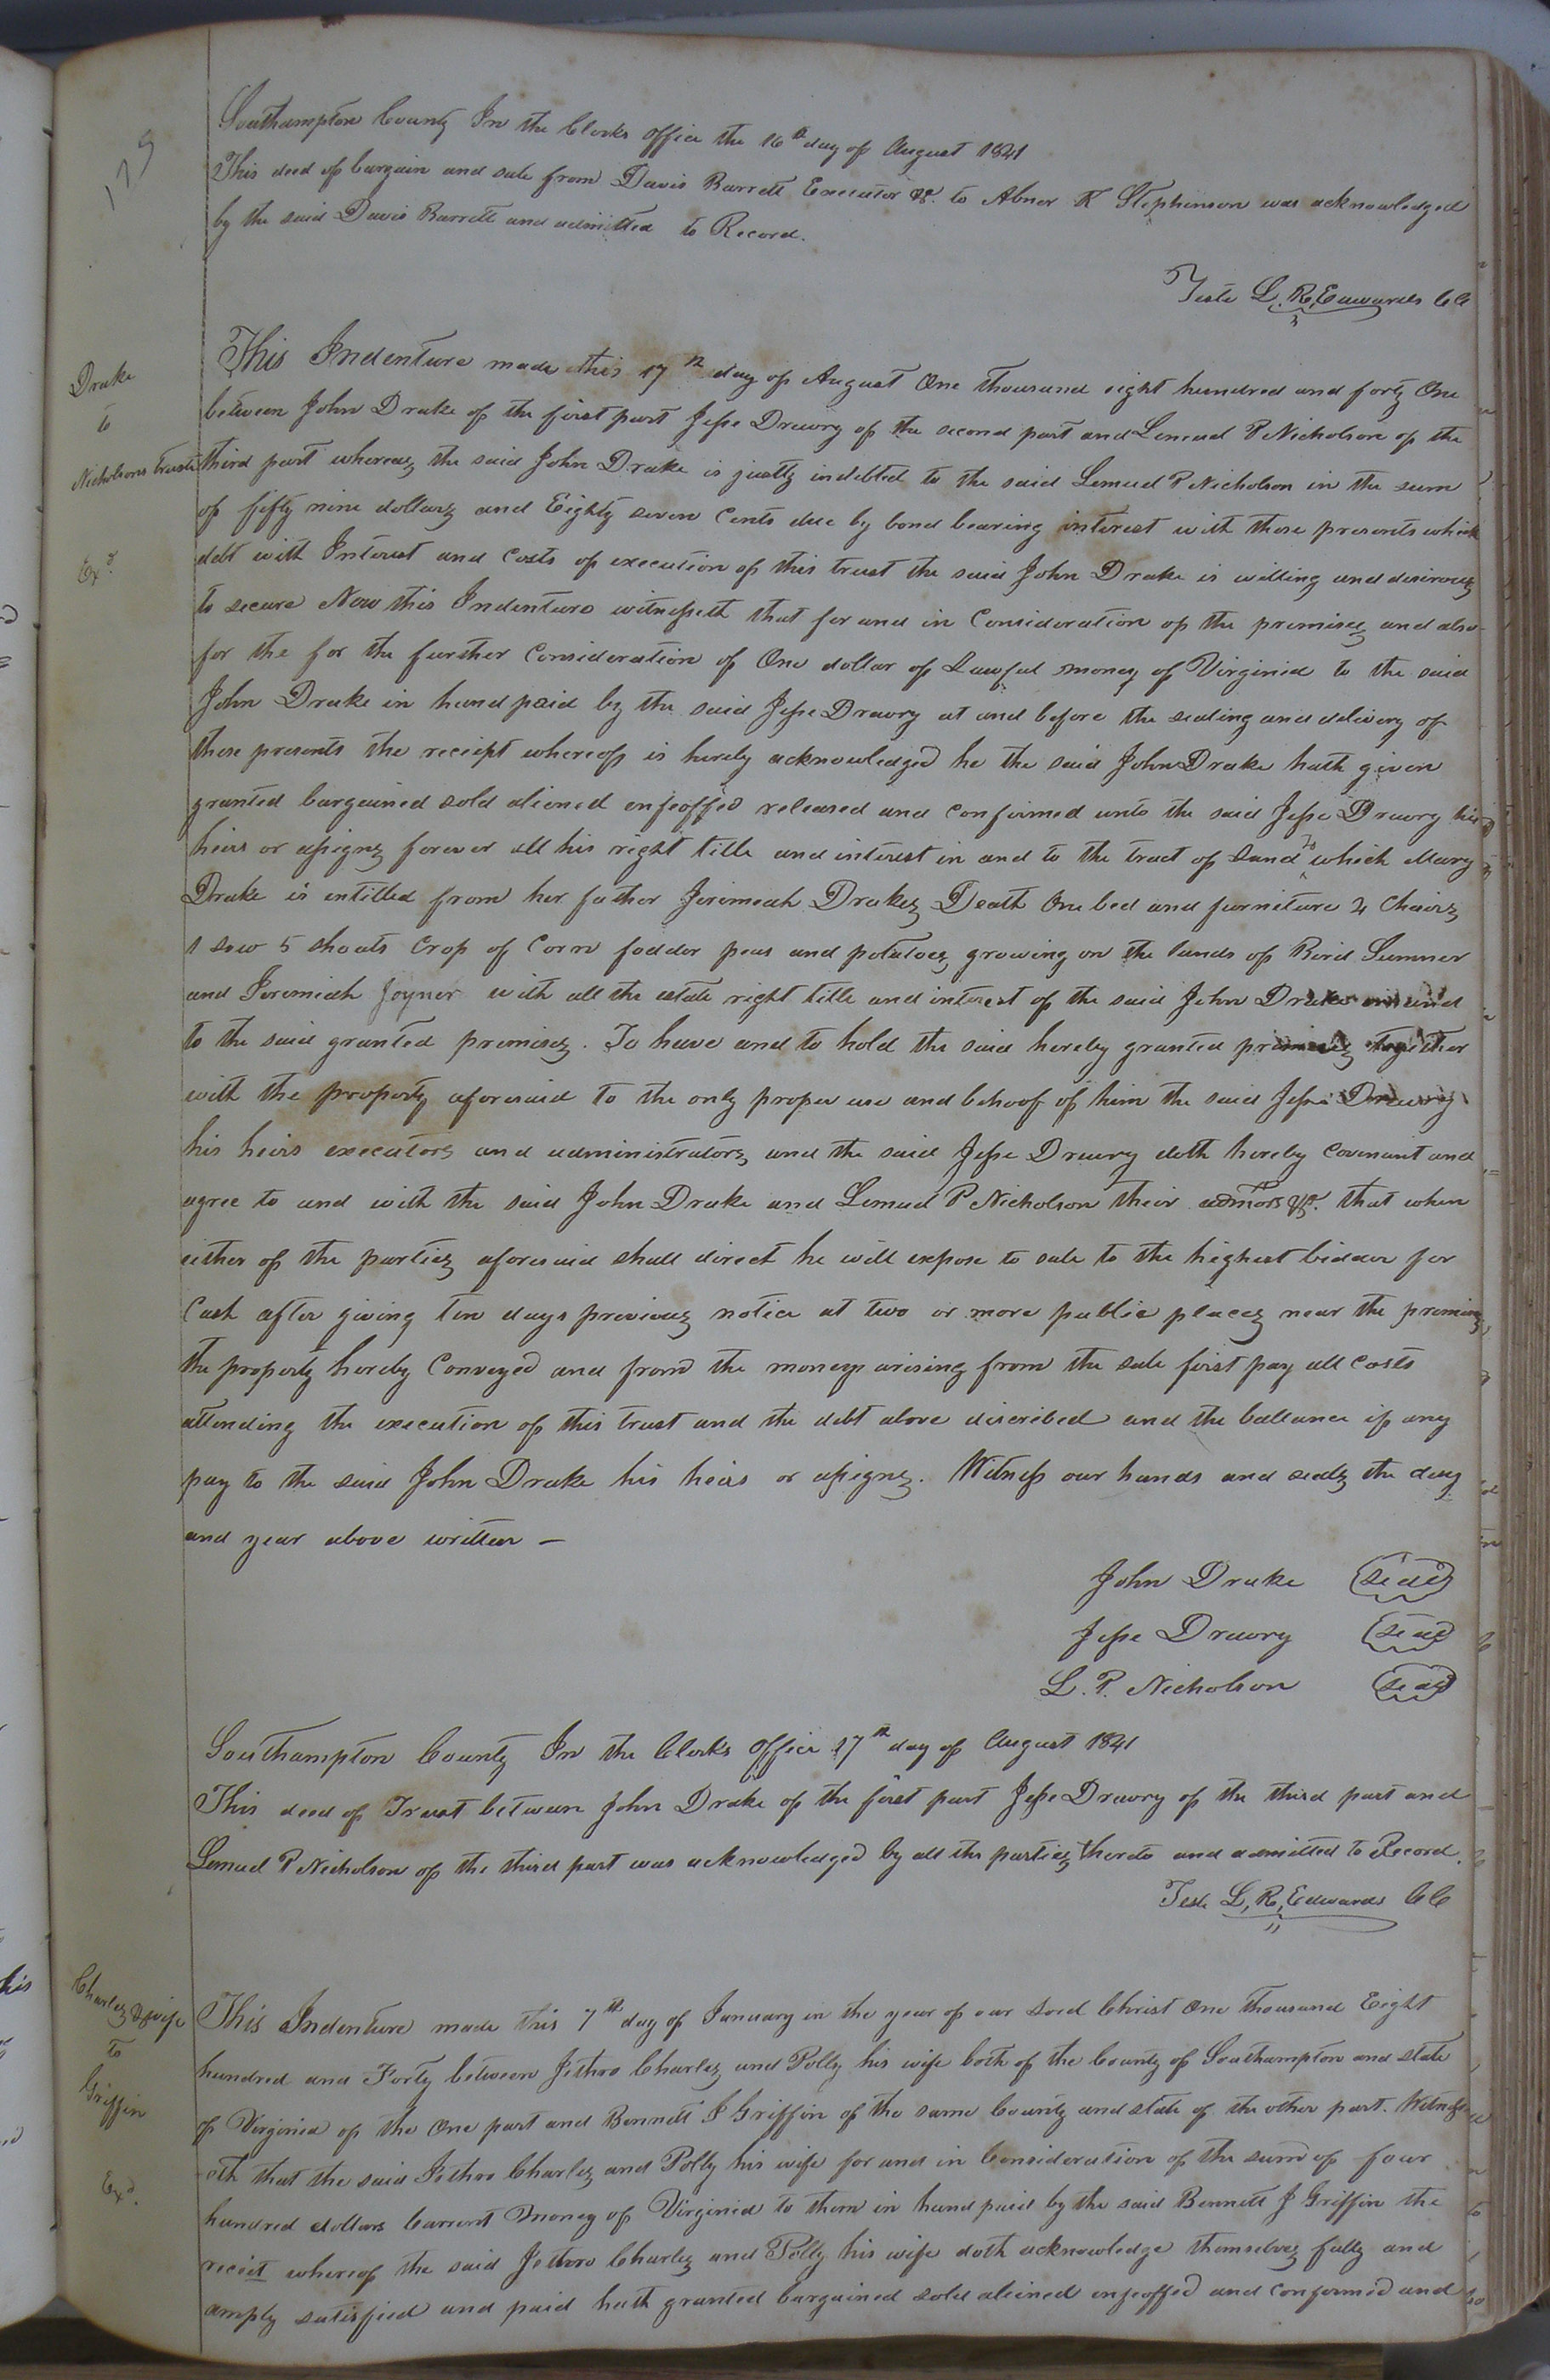 179
Southampton County In the Clerks office the 16th day of August 1841
This deed of bargain and sale from Davis Barrett Executor &c. to Abner K Stephenson was acknowledged
by the said Davis Barrett and admitted to Record.
Teste L. R. Edwards CC
Drake
to
Nicholsons Trustee
Exd.
This Indenture made this 17th day of August One thousand eight hundred and forty One
between John Drake of the first part Jesse Drewry of the second part and Lemuel P Nicholson of the
third part whereas the said John Drake is justly indebted to the said Lemuel P Nicholson in the sum
of fifty nine dollars and Eighty seven Cents due by bond bearing interest with these presents which
debt with Interest and Costs of execution of this trust the said John Drake is willing and desirous
to secure Now this Indenture witnesseth that for and in Consideration of the premises and also
for the for the further Consideration of One dollar of Lawful money of Virginia to the said
John Drake in hand paid by the said Jesse Drewry at and before the sealing and delivery of
these presents the reciept whereof is hereby acknowledged he the said John Drake hath given
granted bargained sold aliened enfeoffed released and confirmed unto the said Jesse Drewry his
heirs or assigns forever all his right title and interest in and to the tract of Land to which Mary
Drake is intitled from her father Jeremiah Drakes Death One bed and furniture 4 Chairs
1 sow 5 shoats Crop of Corn fodder peas and potatoes growing on the lands of Bird Sumner
and Jeremiah Joyner with all the estate right title and interest of the said John Drake in and
to the said granted premises. To have and to hold the said hereby granted premises together
with the property aforesaid to the only proper use and behoof of him the said Jesse Drewry
his heirs executors and administrators and the said Jesse Drewry doth hereby Covenant and
agree to and with the said John Drake and Lemuel P Nicholson their admors &c. that when
either of the parties aforesaid shall direct he will expose to sale to the highest bidder for
Cash after giving ten days previous notice at two or more public places near the premises
the property hereby Conveyed and from the moneys arising from the sale first pay all Costs
attending the execution of this trust and the debt above discribed and the ballance if any
pay to the said John Drake his heirs or assigns. Witness our hands and seals the day
and year above written —
John Drake seal
Jesse Drewry seal
L. P. Nicholson seal
Southampton County In the Clerks Office 17th day of August 1841
This deed of Trust between John Drake of the first part Jesse Drewry of the third part and
Lemuel P Nicholson of the third part was acknowledged by all the parties thereto and admitted to Record.
Teste L. R. Edwards CC
Charles & wife
to
Griffin
Exd.
This Indenture made this 7th day of January in the year of our Lord Christ One thousand Eight
hundred and Forty between Jethro Charles and Polly his wife both of the County of Southampton and state
of Virginia of the One part and Bennett J Griffin of the same County and state of the other part. Witness
eth that the said Jethro Charles and Polly his wife for and in Consideration of the sum of four
hundred dollars Current money of Virginia to them in hand paid by the said Bennett J Griffin the
reciet whereof the said Jethro Charles and Polly his wife doth acknowledge themselves fully and
amply satisfied and paid hath granted bargained sold aleined enfeoffed and confirmed and